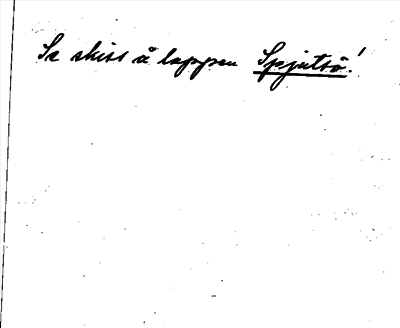 Se skiss å lappen Spjutsö!